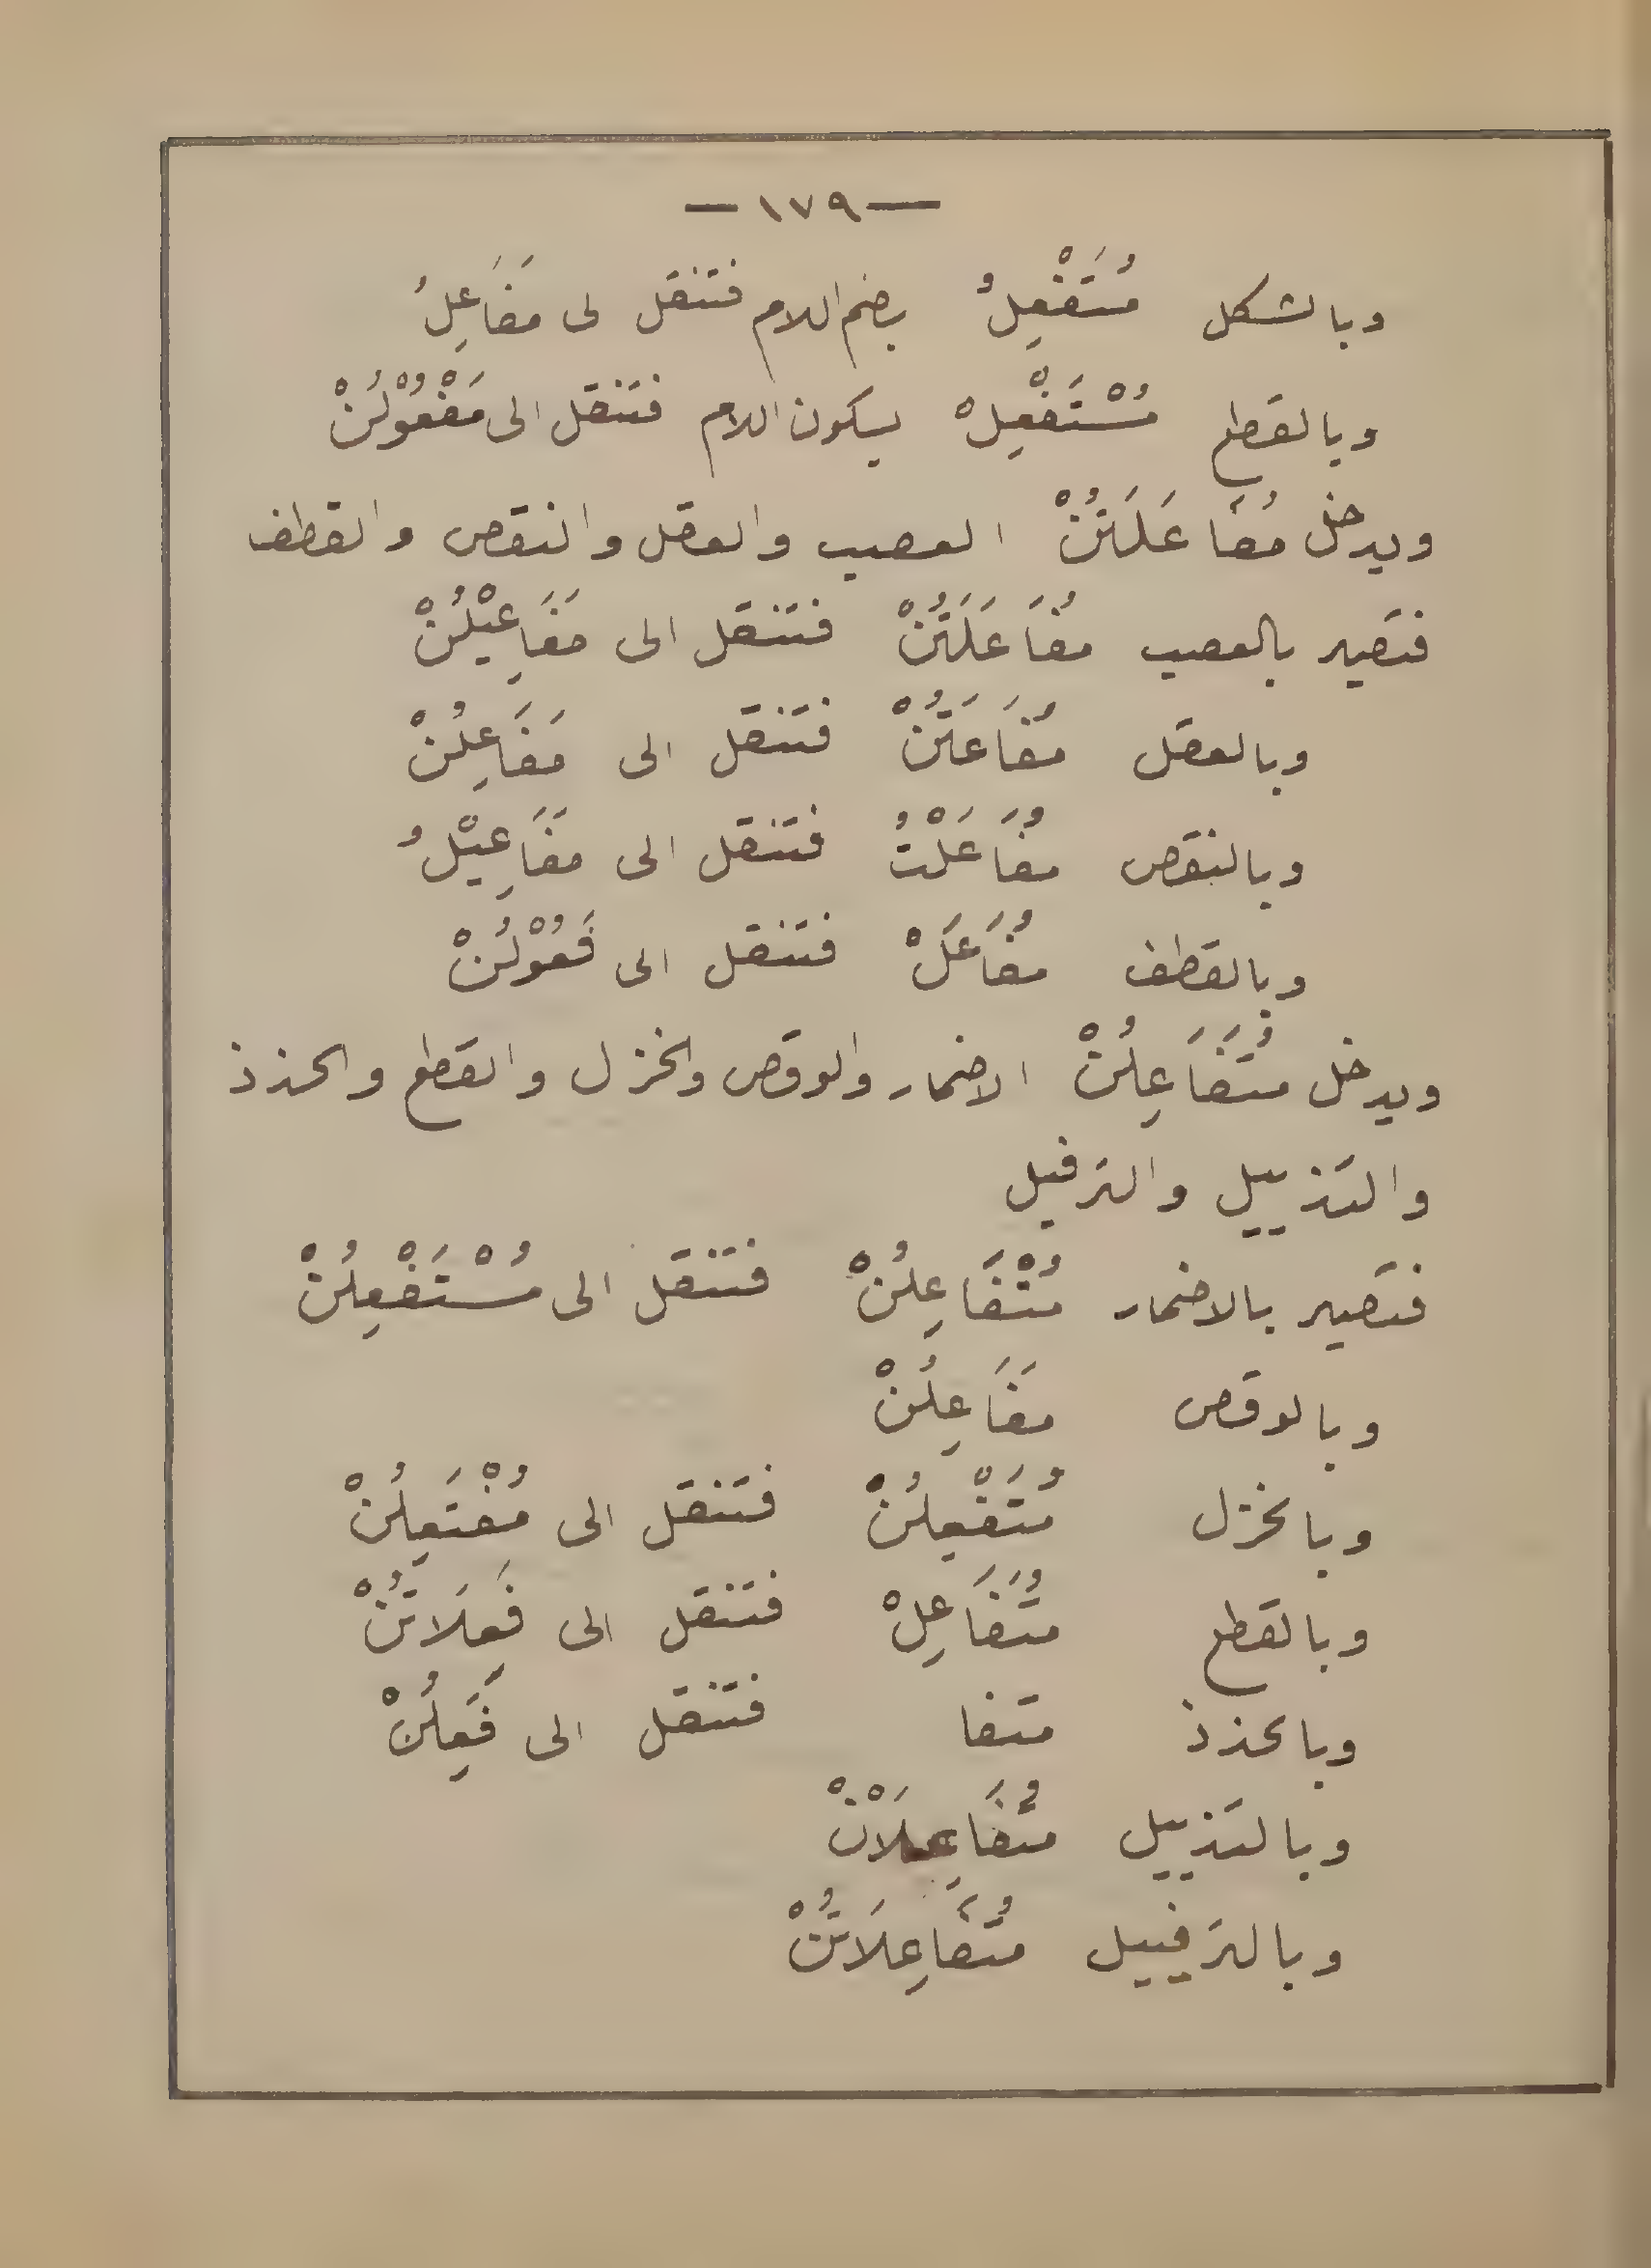 — ١٧٩ —
وبالشكل مُتَفْعِلُ بضم اللام فتنقل لى مَفَاعِلُ
وبالقطع مُسْتَفْعِلْ بسكون اللام فتنقل الى مَفْعُوْلُنْ
ويدخل مُفَاعَلَتُنْ العصب والعقل والنقص والقطف
فتصير بالعصب مُفَاعَلَتُنْ فتنقل الى مَفَاعِيْلُنْ
وبالعقل مُفَاعَتُنْ فتنقل الى مَفَاعِلُنْ
وبالنقص مُفَاعَلْتُ فتنقل الى مَفَاعِيْلُ
وبالقطف مُفَاعَلْ فتنقل الى فَعُوْلُنْ
ويدخل مُتَفَاعِلُنْ الاضمار والوقص والخزل والقطع والحذذ
والتذييل والترفيل
فتصير بالاضمار مُتْفَاعِلُنْ فتنقل الى مُسْتَفْعِلُنْ
وبالوقص مَفَاعِلُنْ
وبالخزل مُتَفْعِلُنْ فتنقل الى مُفْتَعِلُنْ
وبالقطع مُتَفَاعِلْ فتنقل الى فَعِلَاتُنْ
وبالحذذ متفا فتنقل الى فَعِلُنْ
وبالتذييل مُتَفَاعِلَاْنْ
وبالترفييل مُتَفَاعِلَاتُنْ